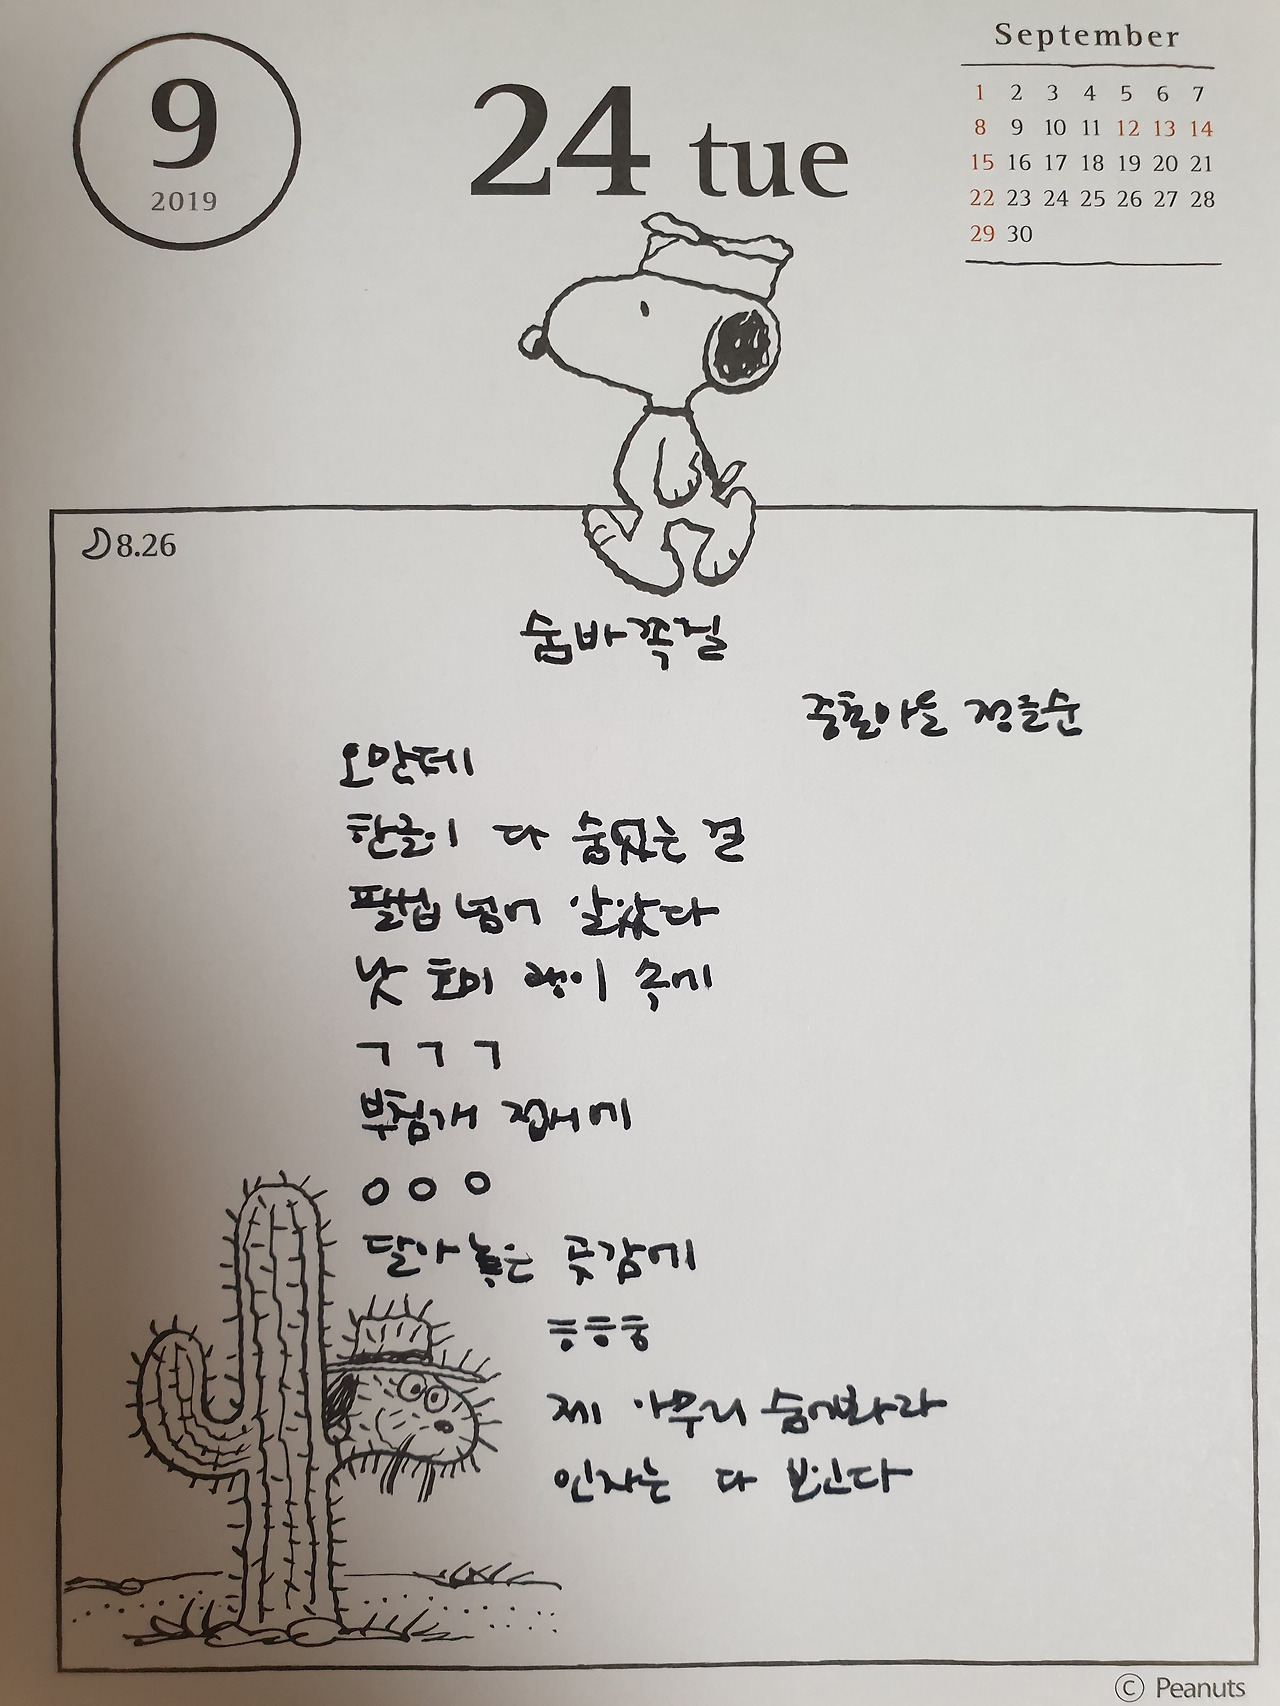 9
2019
24 tue
September
1 2 3 4 5 6 7
8 9 10 11 12 13 14
15 16 17 18 19 20 21
22 23 24 25 26 27 28
29 30
8.26
숨바꼭질
정을순
오만데
한글이 다 숨었는 걸
팔십 넘어 알았다
낫 호미 괭이 속에
ㄱ ㄱ ㄱ
부침개 접시에
ㅇ ㅇ ㅇ
달아 놓은 곶감에
ㅎㅎㅎ
제 아무리 숨어봐라
인자는 다 보인다
© Peanuts